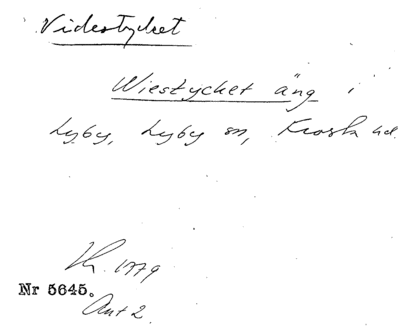 Videstycket
Wiestycket äng i
Lyby, Lyby sn, Frosta hd.
Lh. 1779
Nr 5645.
Ant 2.